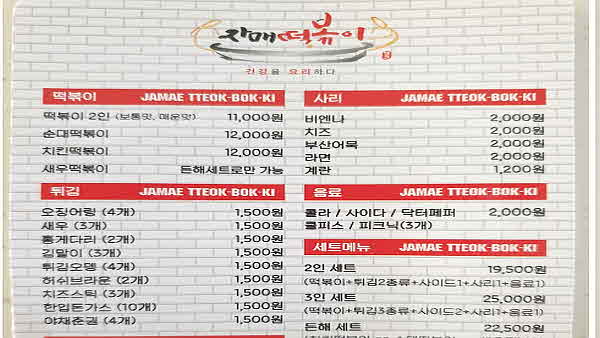 자매떡볶이
건강을 요리하다
떡볶이 JAMAE TTEOK-BOK-KI
떡볶이 2인 (보통맛, 매운맛) 11,000원
순대떡볶이 12,000원
치킨떡볶이 12,000원
새우떡볶이 든해세트로만 가능
튀김 JAMAE TTEOK-BOK-KI
오징어링 (4개) 1,500원
새우 (3개) 1,500원
홍게다리 (2개) 1,500원
김말이 (3개) 1,500원
튀김오뎅 (4개) 1,500원
허쉬브라운 (2개) 1,500원
치즈스틱 (3개) 1,500원
한입돈가스 (10개) 1,500원
야채춘권 (4개) 1,500원
사리 JAMAE TTEOK-BOK-KI
비엔나 2,000원
치즈 2,000원
부산어묵 2,000원
라면 2,000원
계란 1,200원
음료 JAMAE TTEOK-BOK-KI
콜라 / 사이다 / 닥터페퍼 2,000원
쿨피스 / 피크닉(3개)
세트메뉴 JAMAE TTEOK-BOK-KI
2인 세트 19,500원
(떡볶이+튀김2종류+사이드1+사리1+음료1)
3인 세트 25,000원
(떡볶이+튀김3종류+사이드2+사리1+음료1)
든해 세트 22,500원